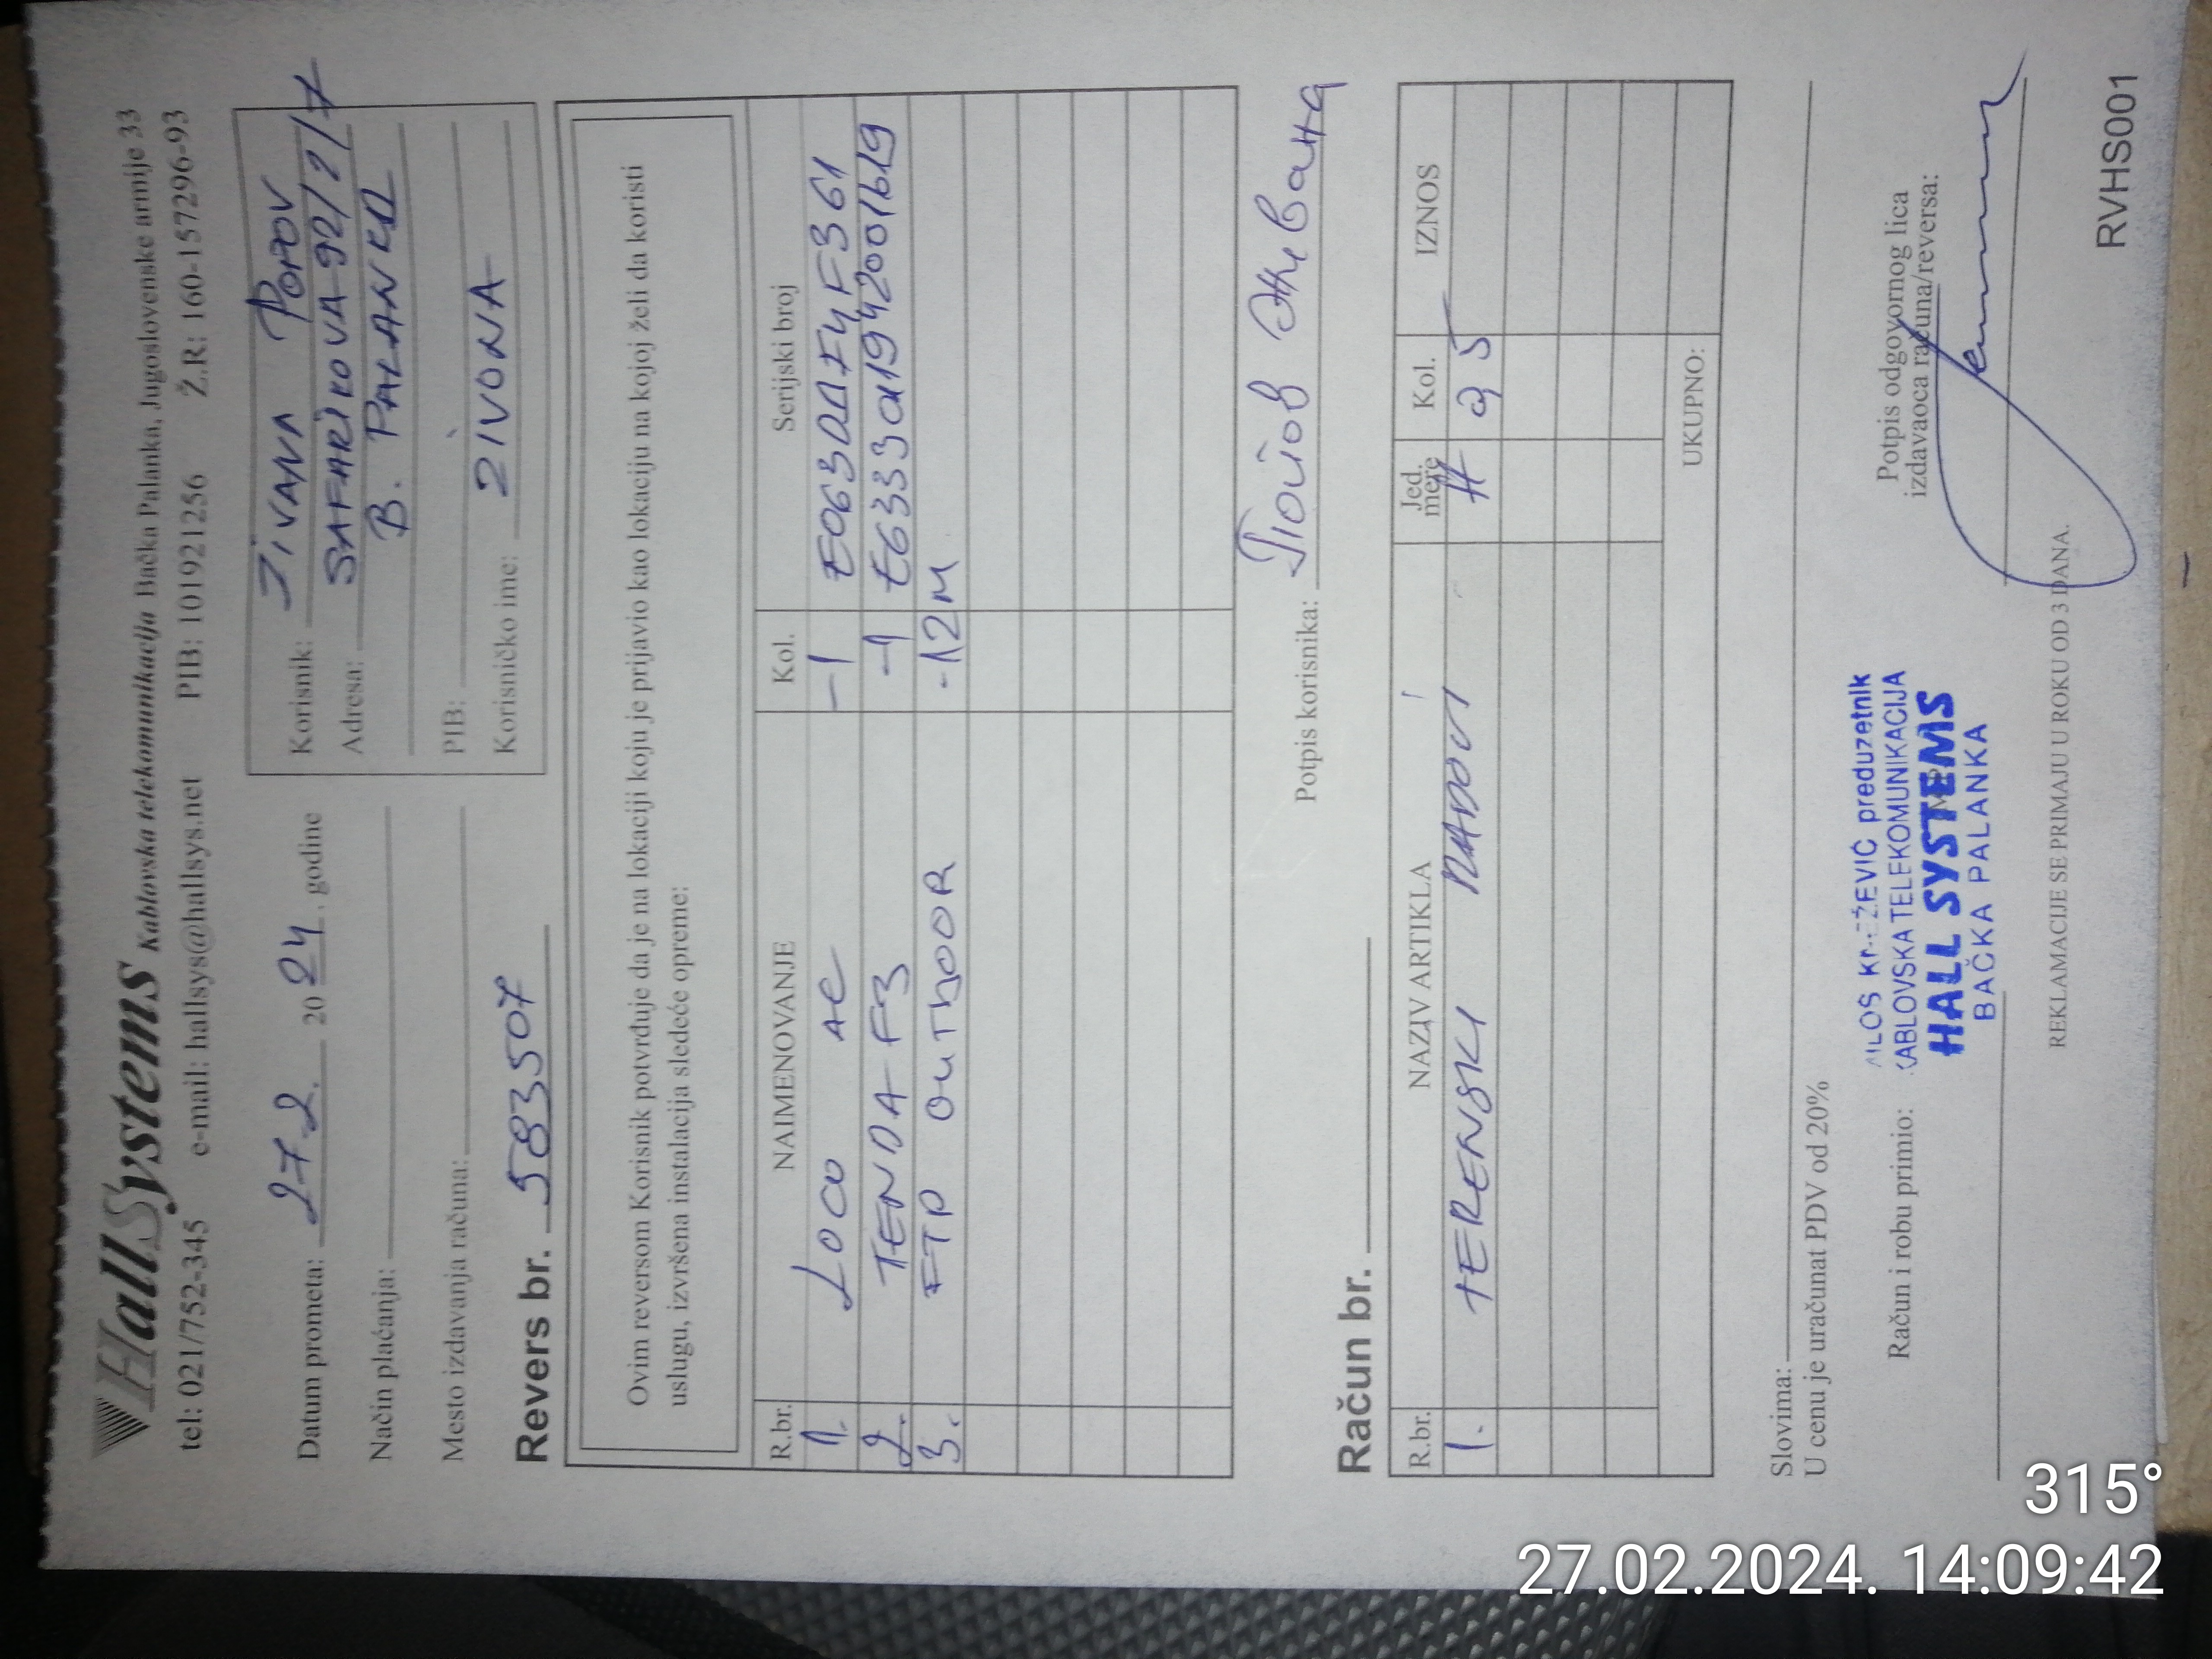 HallSystems Kablovska telekomunikacija Bačka Palanka, Jugoslovenske armije 33
tel: 021/752-345 e-mail: hallsys@hallsys.net PIB: 101921256 Ž.R: 160-1572296-93
Datum prometa: 27.2. 2024. godine
Način plaćanja:
Mesto izdavanja računa:
Korisnik: ŽIVANA POPOV
Adresa: ŠAFARIKOVA 92/2/7
B. PALANKA
PIB:
Korisničko ime: ZIVONA
Revers br. 583507
Ovim reversom Korisnik potvrđuje da je na lokaciji koju je prijavio kao lokaciju na kojoj želi da koristi
uslugu, izvršena instalacija sledeće opreme:
R.br. NAIMENOVANJE Kol. Serijski broj
1. LOCO AC -1 E063DAF4F361
2. TENDA F3 -1 E6333019420016619
3. FTP OUTDOOR -12M
Potpis korisnika: Попов Живана
Račun br.
R.br. NAZIV ARTIKLA Jed. mere Kol. IZNOS
1. TERENSKI RADOVI H 2,5
UKUPNO:
Slovima:
U cenu je uračunat PDV od 20%
Račun i robu primio:
MILOŠ KNEŽEVIĆ preduzetnik
KABLOVSKA TELEKOMUNIKACIJA
HALL SYSTEMS
BAČKA PALANKA
Potpis odgovornog lica
izdavaoca računa/reversa:
REKLAMACIJE SE PRIMAJU U ROKU OD 3 DANA.
RVHS001
315°
27.02.2024. 14:09:42